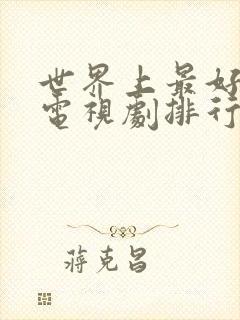 世界上最好
電視劇排行
蔣克昌